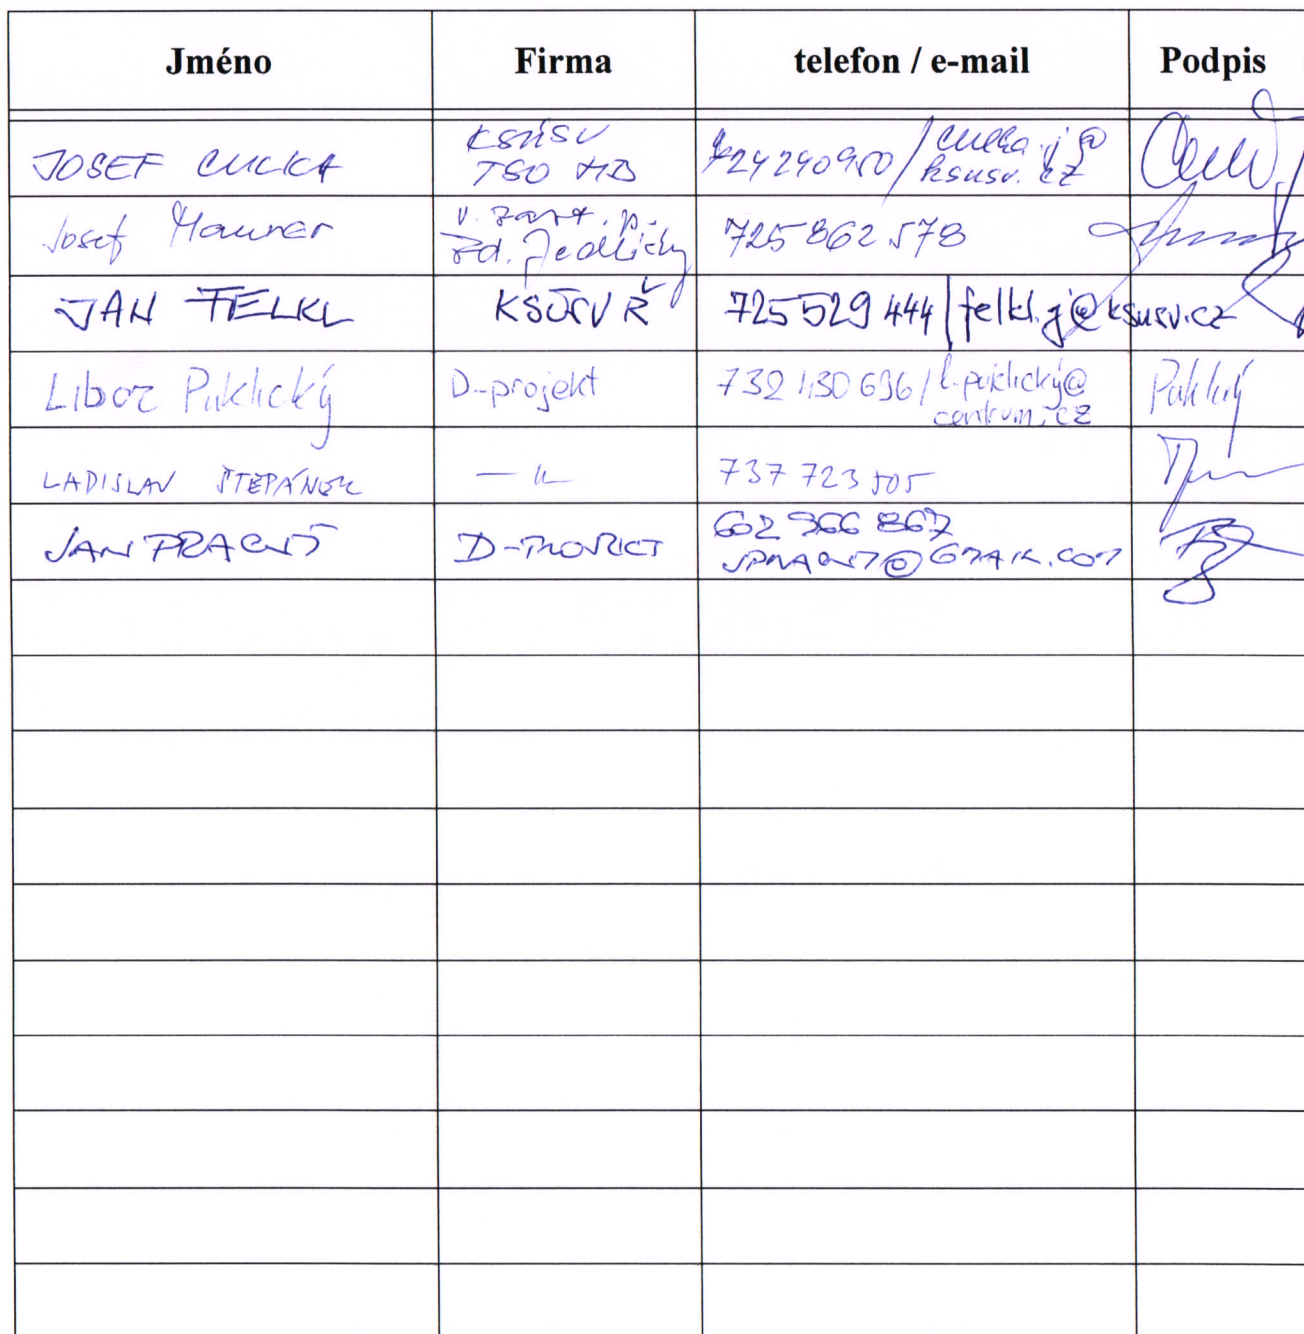 Jméno Firma telefon / e-mail Podpis
JOSEF CUCKA KSÚSV TSO HB 724240950 / cucka.j@ksusv.cz
Josef Maurer v. zast. p. Zd. Jedličky 725 862 578
JAN FELKL KSÚSV Ř 725 529 444 / felkl.j@ksusv.cz
Libor Puklický D-projekt 732 430 696 / l.puklický@centrum.cz Puklický
LADISLAV ŠTEPÁNEK — 〃 737 723 505
JAN PRACNÝ D-PROJEKT 602 966 867 JPRACNY@GMAIL.COM